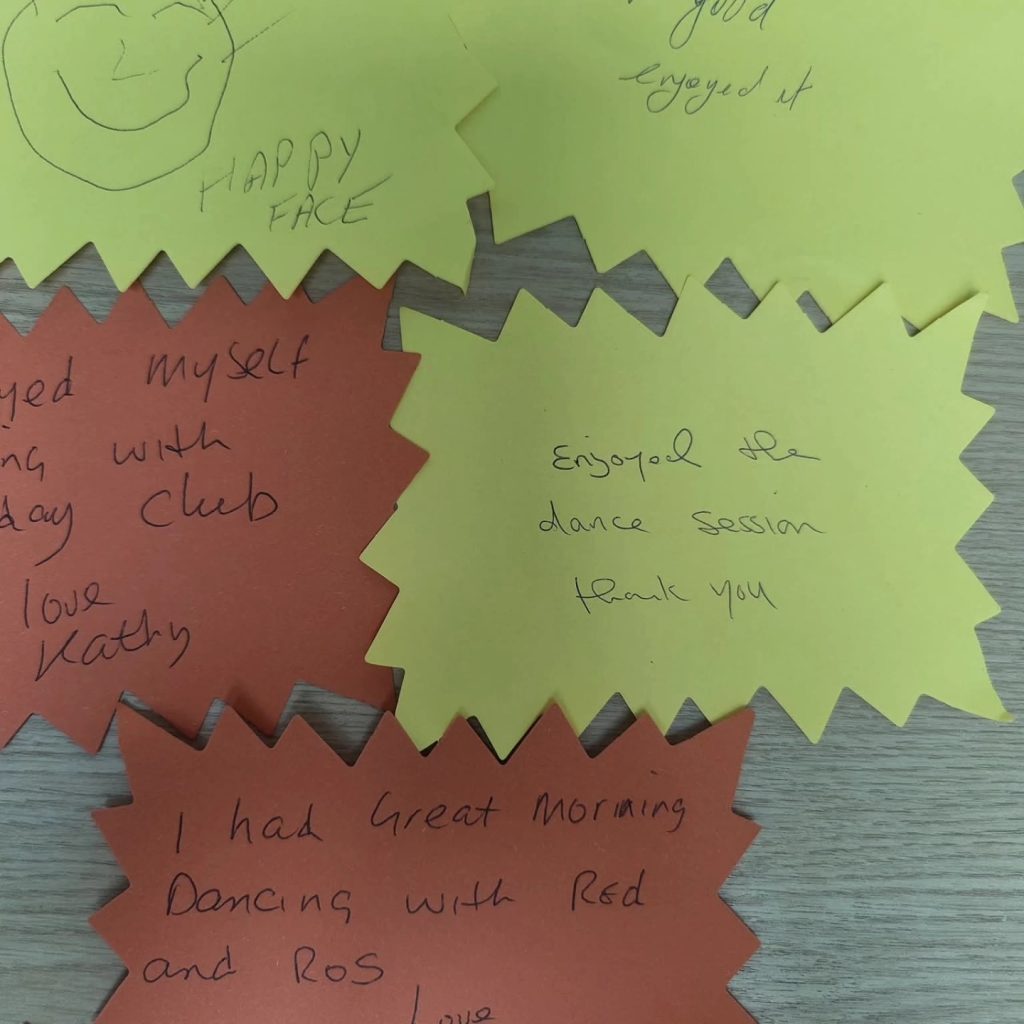 HAPPY
FACE
good
enjoyed it
yed myself
ng with
day club
love
Kathy
Enjoyed the
dance session
thank you
I had Great Morning
Dancing with Red
and Ros
Love